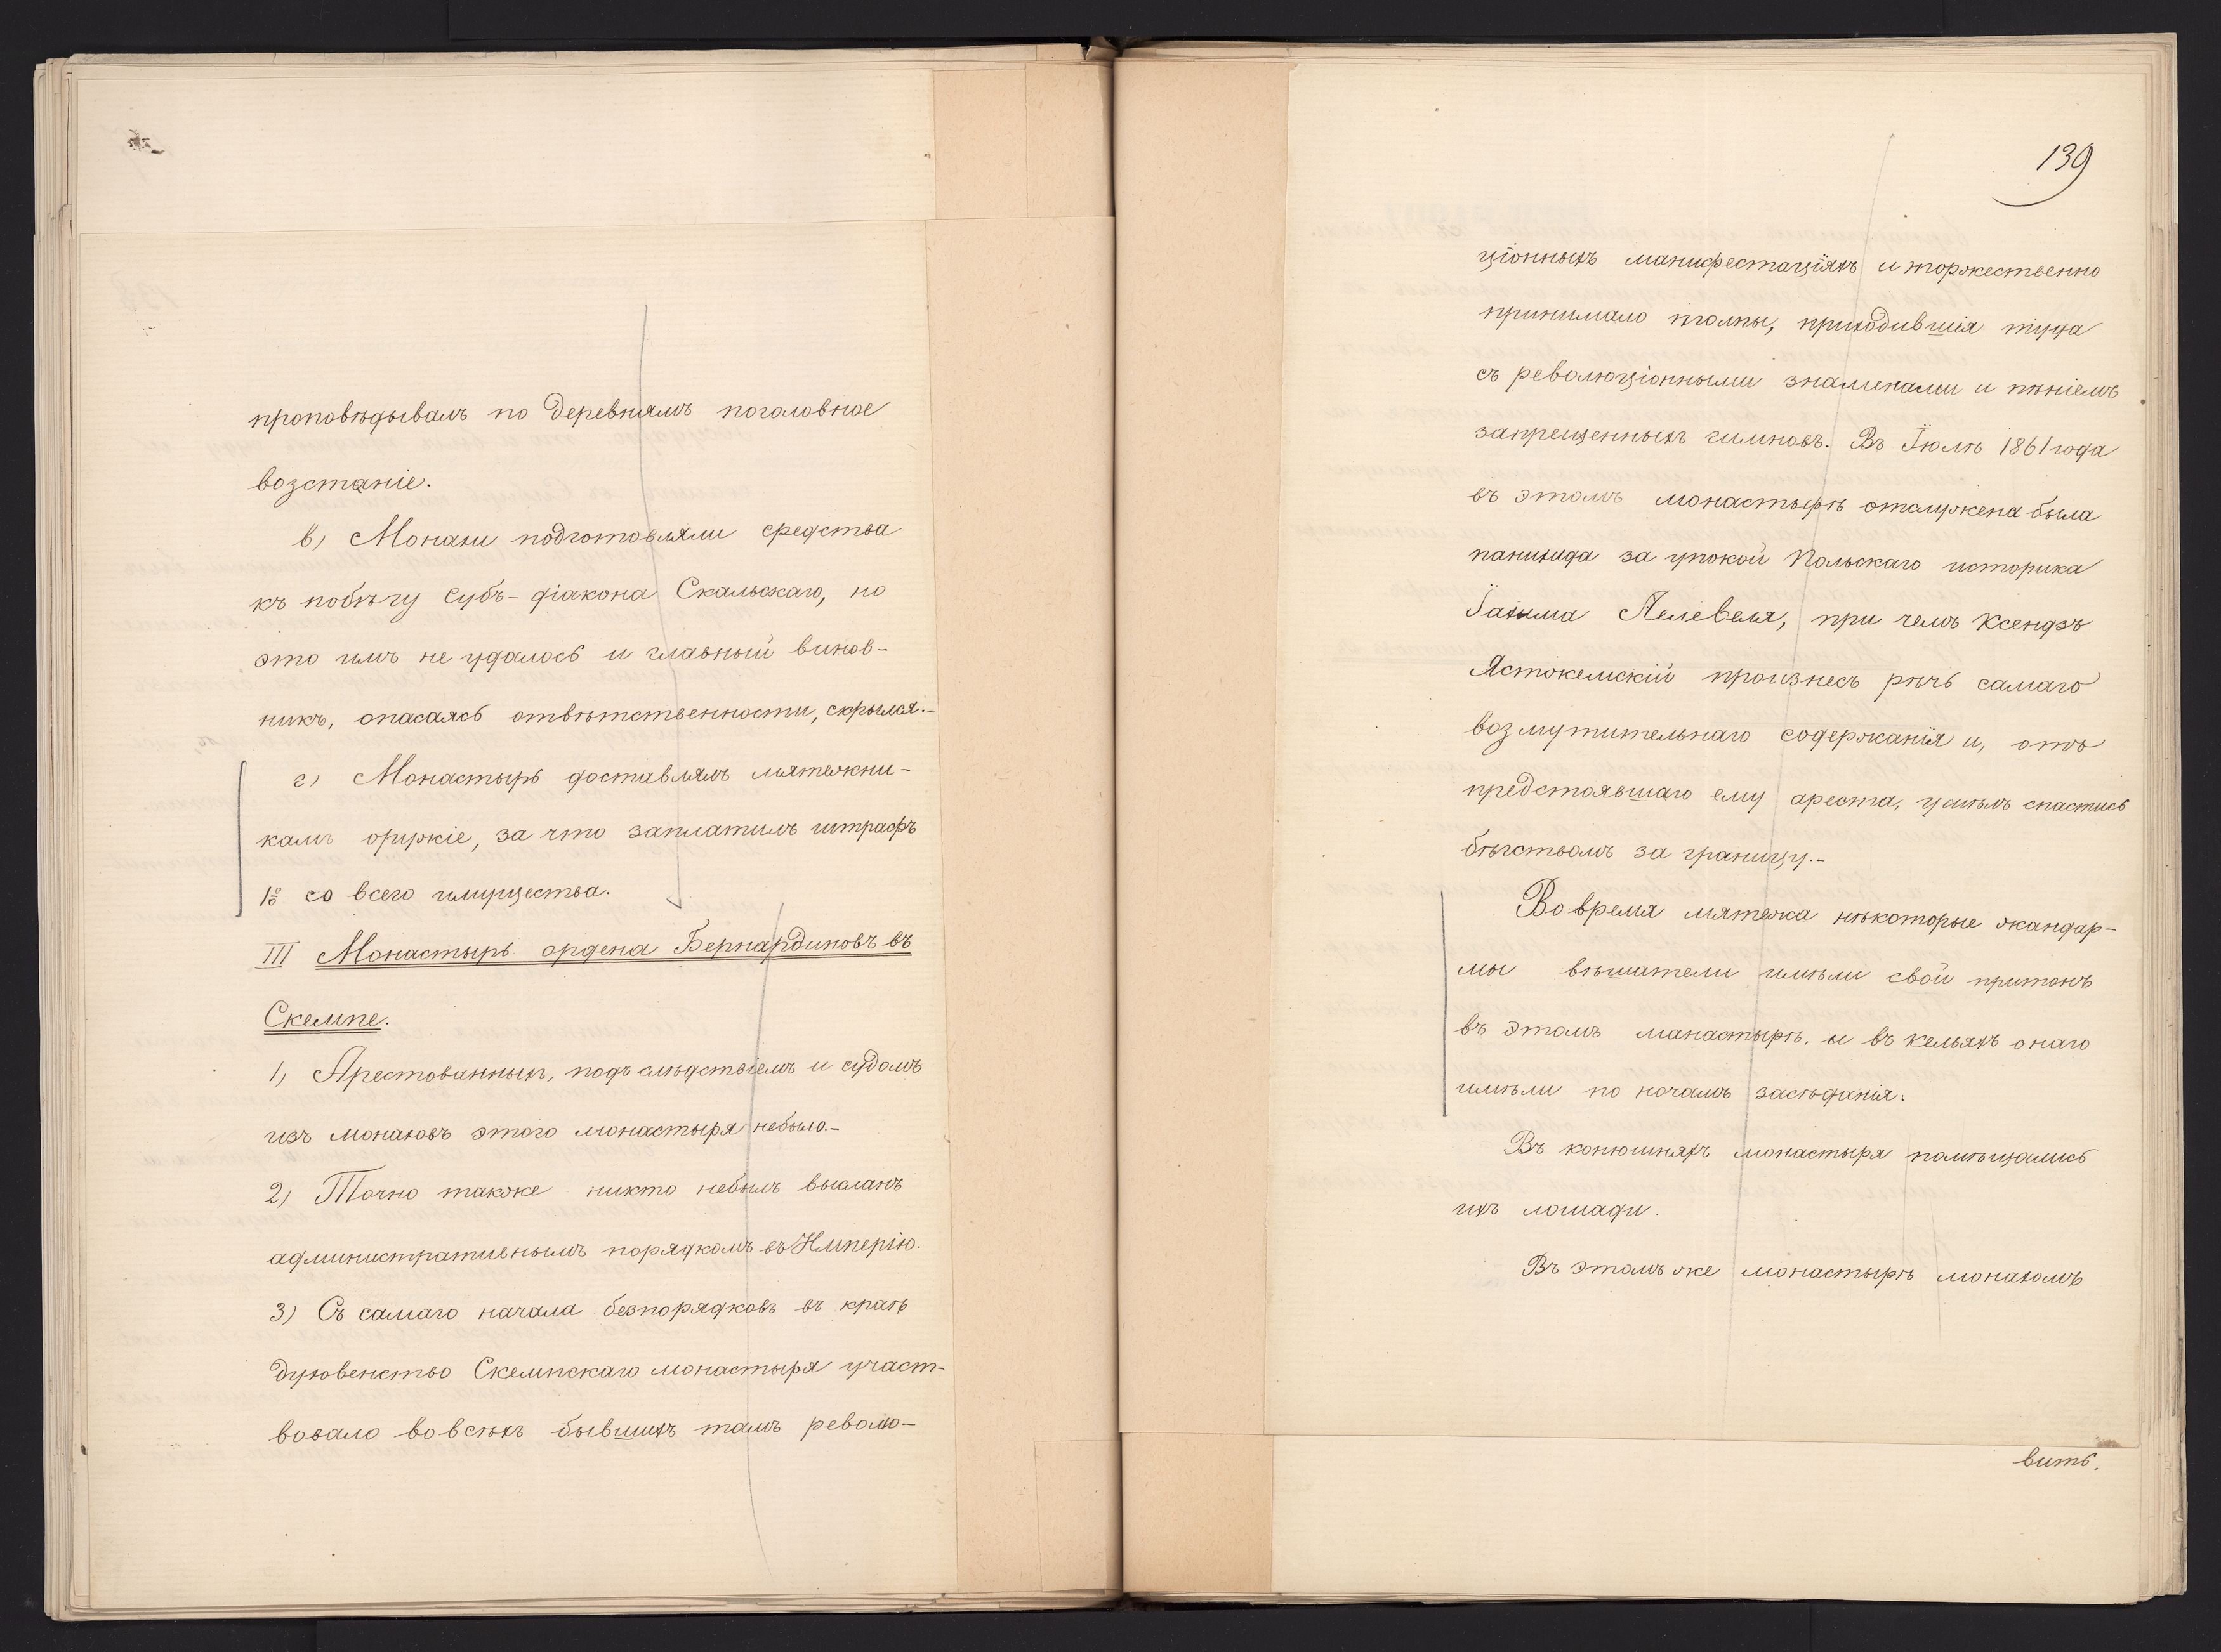 проповѣдывалъ по деревнямъ поголовное
возстаніе.
в) Монахи подготовляли средства
къ побѣгу Субъ-діакона Скальскаго, но
это имъ не удалось и главный винов-
никъ, опасаясь отвѣтственности, скрылся.-
г) Монастырь доставлялъ мятежни-
камъ оружіе, за что заплатилъ штрафъ
1% со всего имущества.
III Монастырь ордена Бернардиновъ въ
Скемпе.
1) Арестованныхъ, подъ слѣдствіемъ и судомъ
изъ монаховъ этого монастыря небыло.-
2) Точно также никто небылъ высланъ
административнымъ порядкомъ въ Имперію.
3) Съ самаго начала безпорядковъ въ краѣ
духовенство Скемпскаго монастыря участ-
вовало во всѣхъ бывшихъ тамъ револю-
139
ціонныхъ манифестаціяхъ и торжественно
принимало толпы, приходившія туда
съ революціонными знаменами и пѣніемъ
запрещенныхъ гимновъ. Въ Іюлѣ 1861 года
въ этомъ монастырѣ отслужена была
панихида за упокой Польскаго историка
Іахима Лелевеля, при чемъ Ксендзъ
Ястжемскій произнесъ рѣчь самаго
возмутительнаго содержанія и, отъ
предстоявшаго ему ареста, успѣлъ спастись
бѣгствомъ за границу.-
Во время мятежа нѣкоторые жандар-
мы вѣшатели имѣли свой притонъ
въ этомъ манастырѣ, и въ кельяхъ онаго
имѣли по ночамъ засѣданія.
Въ конюшняхъ монастыря помѣщались
ихъ лошади.
Въ этомъ же монастырѣ монахомъ
вить.